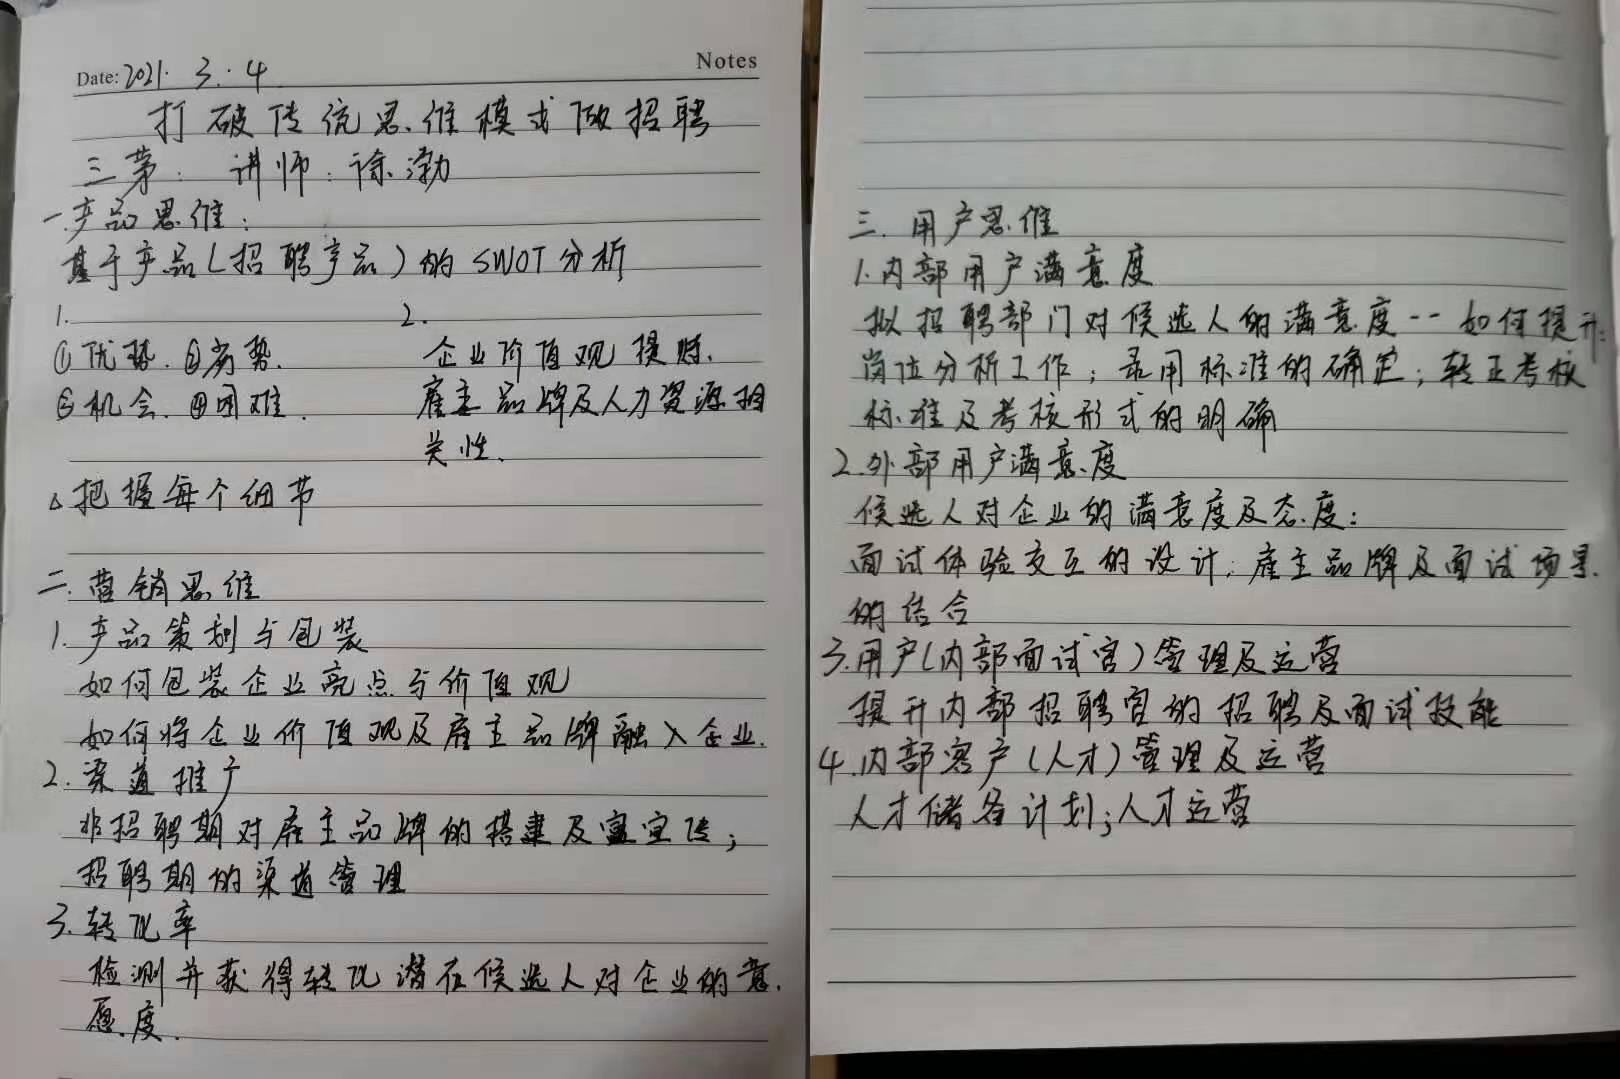 Notes
Date: 2021. 3. 4
打破传统思维模式做招聘
三茅: 讲师:徐渤
一.产品思维:
基于产品(招聘产品)的SWOT分析
1.
①优势.②劣势.
③机会.④困难.
2.
企业价值观提炼.
雇主品牌及人力资源相
关性.
△把握每个细节
二.营销思维
1.产品策划与包装
如何包装企业亮点与价值观
如何将企业价值观及雇主品牌融入企业.
2.渠道推广
非招聘期对雇主品牌的搭建及宣传;
招聘期的渠道管理
3.转化率
检测并获得转化潜在候选人对企业的意
愿度.
三.用户思维
1.内部用户满意度
拟招聘部门对候选人的满意度--如何提升:
岗位分析工作;录用标准的确定;转正考核
标准及考核形式的明确
2.外部用户满意度
候选人对企业的满意度及态度:
面试体验交互的设计;雇主品牌及面试场景
的结合
3.用户(内部面试官)管理及运营
提升内部招聘官的招聘及面试技能
4.内部客户(人才)管理及运营
人才储备计划;人才运营